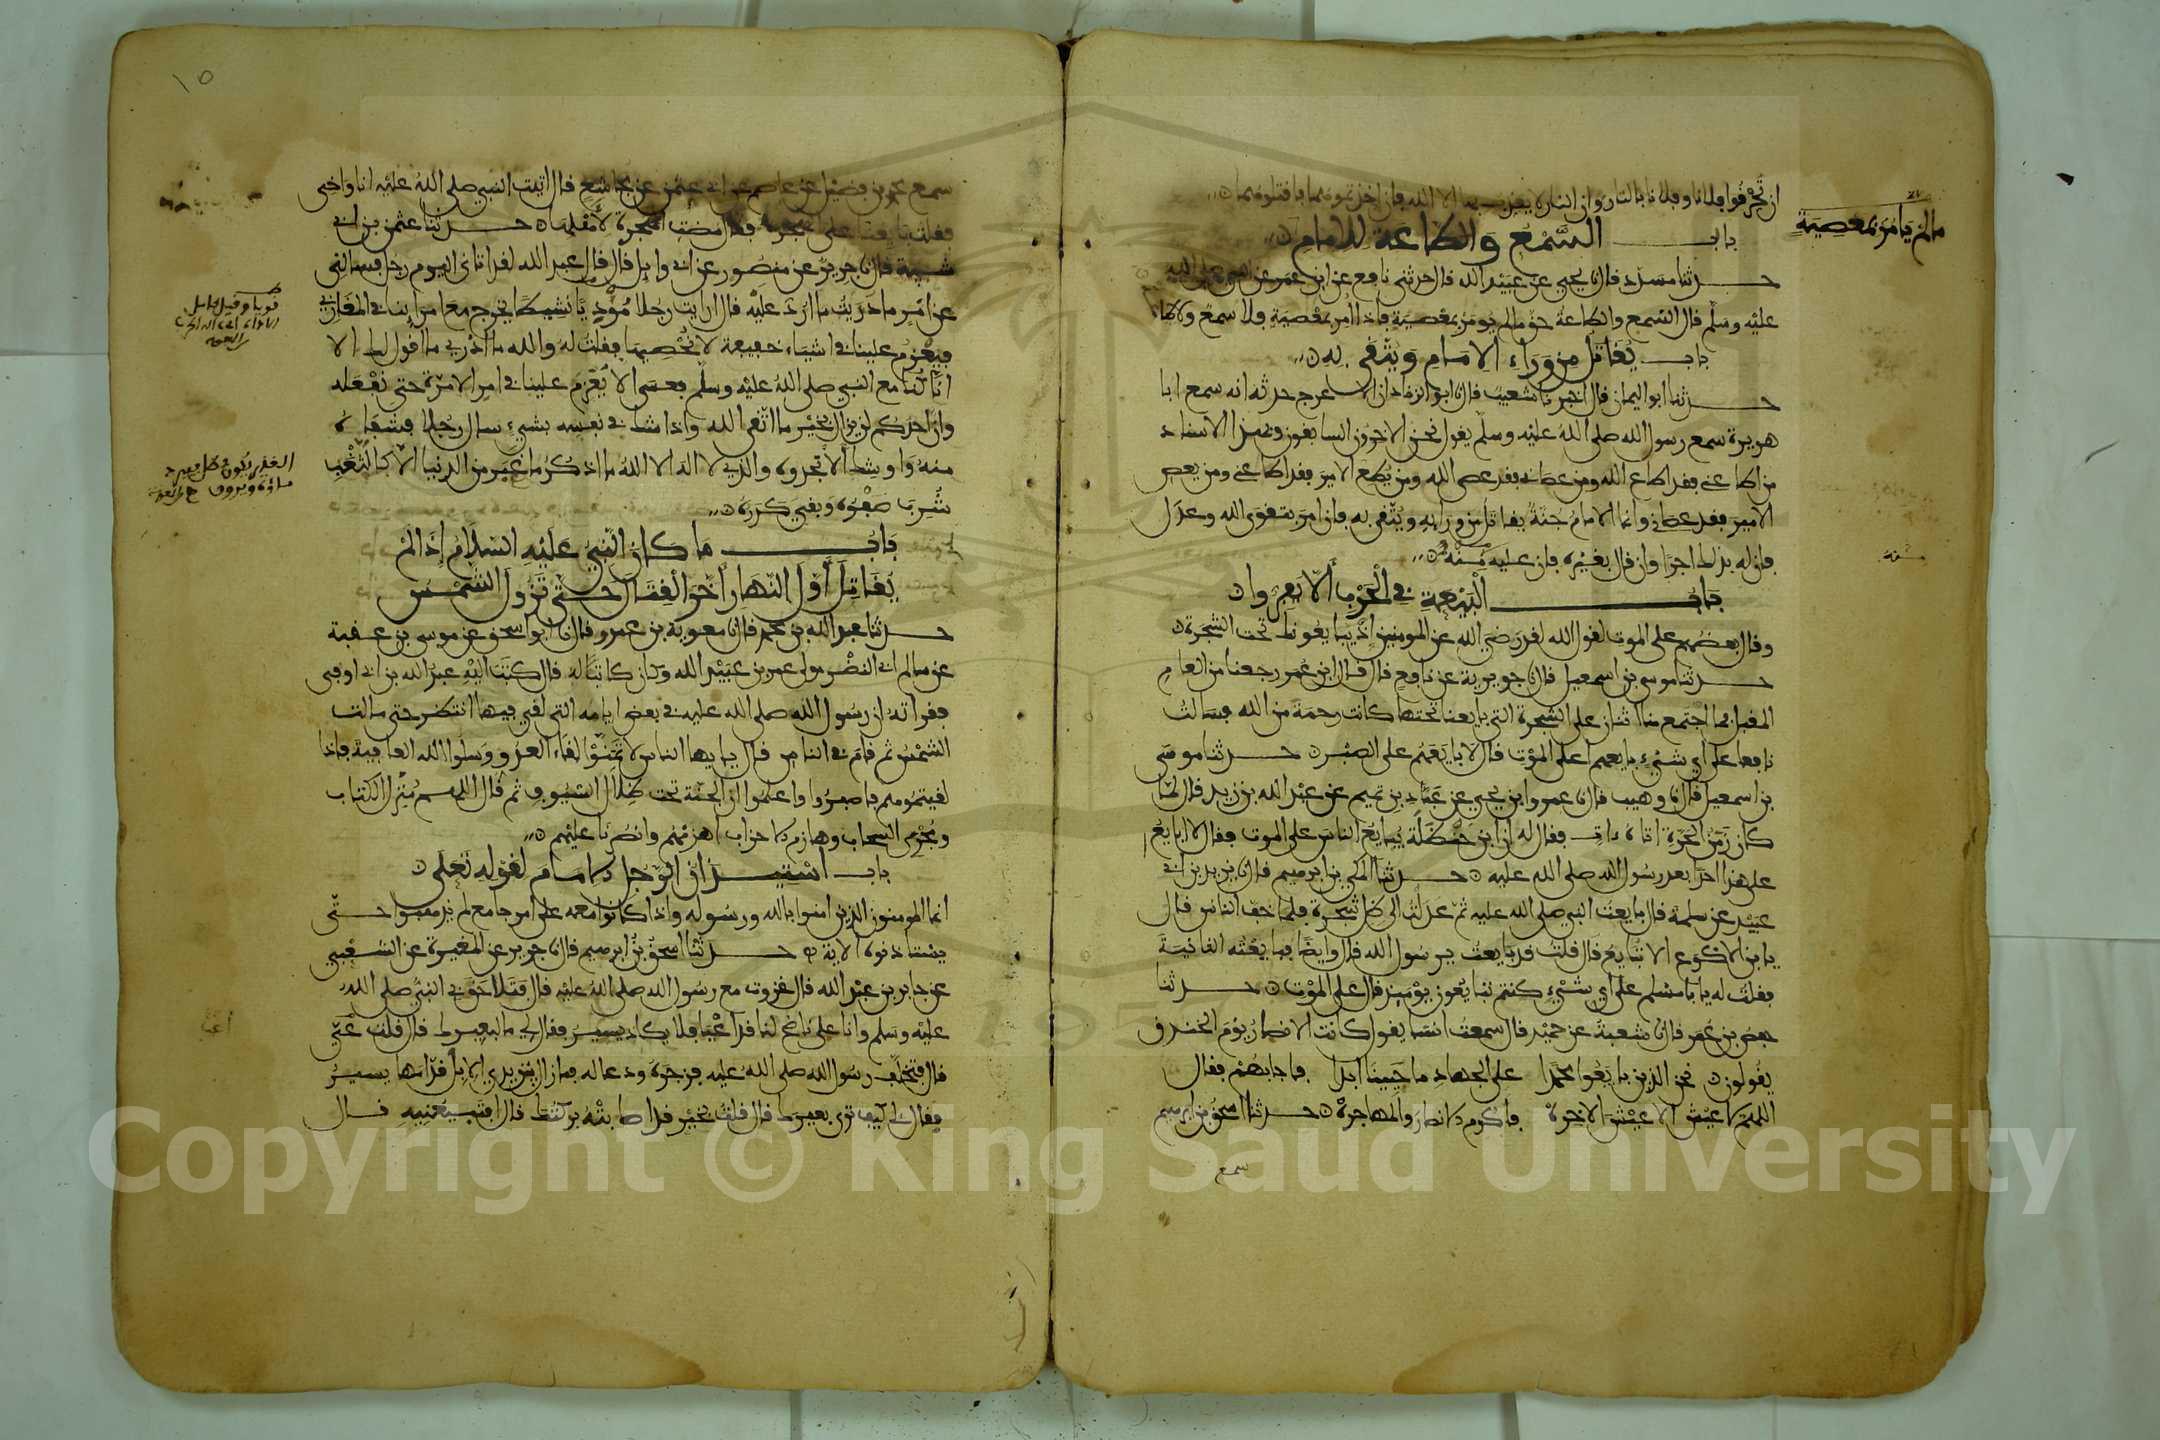 ان تحرقوا فلانا وفلانا بالنار وان النار لا يعذب بها الا الله فان اخذتموهما فاقتلوهما
باب السمع والطاعة للامام
مالم يامر بمعصية
حدثنا مسدد قال نا يحيى عن عبيد الله قال حدثني نافع عن ابن عمر عن النبي صلى الله
عليه وسلم قال السمع والطاعة حق مالم يومر بمعصية فاذا أمر بمعصية فلا سمع ولا طا
باب يقاتل من وراء الامام ويتقى به
حدثنا ابو اليمان قال اخبرنا شعيب قال نا ابو الزناد ان الاعرج حدثه انه سمع ابا
هريرة سمع رسول الله صلى الله عليه وسلم يقول نحن الاخرون السابقون وبهذا الاسناد
من اطاعني فقد اطاع الله ومن عصاني فقد عصى الله ومن يطع الامير فقد اطاعني ومن يعص
الامير فقد عصاني وانما الامام جنة يقاتل من ورائه ويتقى به فان امر بتقوى الله وعدل
فان له بذلك اجرا وان قال بغيره فان عليه منه
باب البيعة في الحرب ألا يفروا
وقال بعضهم على الموت لقول الله لقد رضي الله عن المومنين إذ يبايعونك تحت الشجرة
حدثنا موسى بن اسمعيل قال نا جويرية عن نافع قال قال ابن عمر رجعنا من العام
المقبل فما اجتمع منا اثنان على الشجرة التي بايعنا تحتها كانت رحمة من الله فسالت
نافعا على اي شيء بايعهم اعلى الموت قال لا بايعهم على الصبر حدثنا موسى
بن اسمعيل قال نا وهيب قال نا عمرو بن يحيى عن عباد بن تميم عن عبد الله بن زيد قال لما
كان زمن الحرة اتاه ءات فقال له ان ابن حنظلة يبايع الناس على الموت فقال لا ابايع
على هذا احدا بعد رسول الله صلى الله عليه حدثنا المكي بن ابرهيم قال نا يزيد بن ابي
عبيد عن سلمة قال بايعت النبي صلى الله عليه ثم عدلت الى ظل شجرة فلما خف الناس قال
يا بن الاكوع الا تبايع قال قلت قد بايعت يرسول الله قال وايضا فبايعته الثانية
فقلت له يا با مسلم على اي شيء كنتم تبايعون يومئذ قال على الموت حدثنا
حفص بن عمر قال نا شعبة عن حميد قال سمعت انسا يقول كانت الانصار يوم الخندق
يقولون نحن الذين بايعوا محمدا على الجهاد ما حيينا ابدا فاجابهم فقال
اللهم لا عيش الا عيش الاخرة فاكرم الانصار والمهاجرة حدثنا اسحق بن ابرهيم
سمع
١٥
سمع محمد بن فضيل عن عاصم عن ابي عثمن عن مجاشع قال اتيت النبي صلى الله عليه انا واخي
فقلت بايعنا على الهجرة فقال مضت الهجرة لأهلها حدثنا عثمن بن ابي
شيبة قال نا جرير عن منصور عن ابي وايل قال قال عبد الله لقد اتاني اليوم رجل فسالني
عن أمر ما دريت ما ارد عليه قال ارايت رجلا مؤديا نشيطا يخرج مع امراينا في المغازي
فيعزم علينا في اشياء لا نحصيها فقلت له والله ما ادري ما اقول لك الا
انا كنا مع النبي صلى الله عليه وسلم فعسى الا يعزم علينا في امر الا مرة حتى نفعله
وان احدكم لن يزال بخير ما اتقى الله واذا شك في نفسه شيء سال رجلا فشفاه
منه واوشك ألا تجدوه والذي لا اله الا الله ما اذكر ما غبر من الدنيا الا كالثغب
شرب صفوه وبقي كدره
باب ما كان النبي عليه السلام إذا لم
يقاتل أول النهار أخر القتال حتى تزول الشمس
حدثنا عبد الله بن محمد قال نا معوية بن عمرو قال نا ابو اسحق عن موسى بن عقبة
عن سالم ابي النضر مولى عمر بن عبيد الله وكان كاتبا له قال كتب اليه عبد الله بن ابي اوفى
فقراته ان رسول الله صلى الله عليه في بعض ايامه التي لقي فيها انتظر حتى مالت
الشمس ثم قام في الناس قال يا يها الناس لا تتمنوا لقاء العدو وسلوا الله العافية فاذا
لقيتموهم فاصبروا واعلموا ان الجنة تحت ظلال السيوف ثم قال اللهم منزل الكتاب
ومجري السحاب وهازم الاحزاب اهزمهم وانصرنا عليهم
باب استيذان الرجل الامام لقوله تعلى
انما المومنون الذين امنوا بالله ورسوله واذا كانوا معه على امر جامع لم يذهبوا حتى
يستاذنوه الاية حدثنا اسحق بن ابرهيم قال نا جرير عن المغيرة عن الشعبي
عن جابر بن عبد الله قال غزوت مع رسول الله صلى الله عليه قال فتلاحق بي النبي صلى الله
عليه وسلم وانا على ناضح لنا قد أعيا فلا يكاد يسير فقال لي ما لبعيرك قال قلت عيي
قال فتخلف رسول الله صلى الله عليه فزجره ودعا له فما زال بين يدي الابل قدامها يسير
فقال لي كيف ترى بعيرك قال قلت بخير قد اصابته بركتك قال افتبيعنيه قال